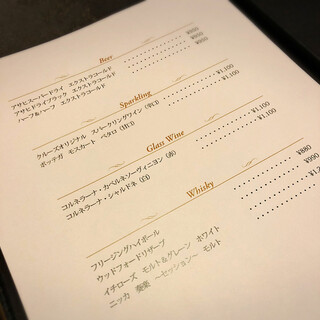 Beer
アサヒスーパードライ エクストラコールド ¥950
アサヒドライブラック エクストラコールド ¥950
ハーフ&ハーフ エクストラコールド ¥950
Sparkling
クルーズオリジナル スパークリングワイン (辛口) ¥1,100
ボッテガ モスカート ペタロ (甘口) ¥1,100
Glass Wine
コルネラーナ・カベルネソーヴィニヨン (赤) ¥1,100
コルネラーナ・シャルドネ (白) ¥1,100
Whisky
フリージングハイボール ¥880
ウッドフォードリザーブ ¥990
イチローズ モルト&グレーン ホワイト
ニッカ 奏楽 ～セッション～ モルト